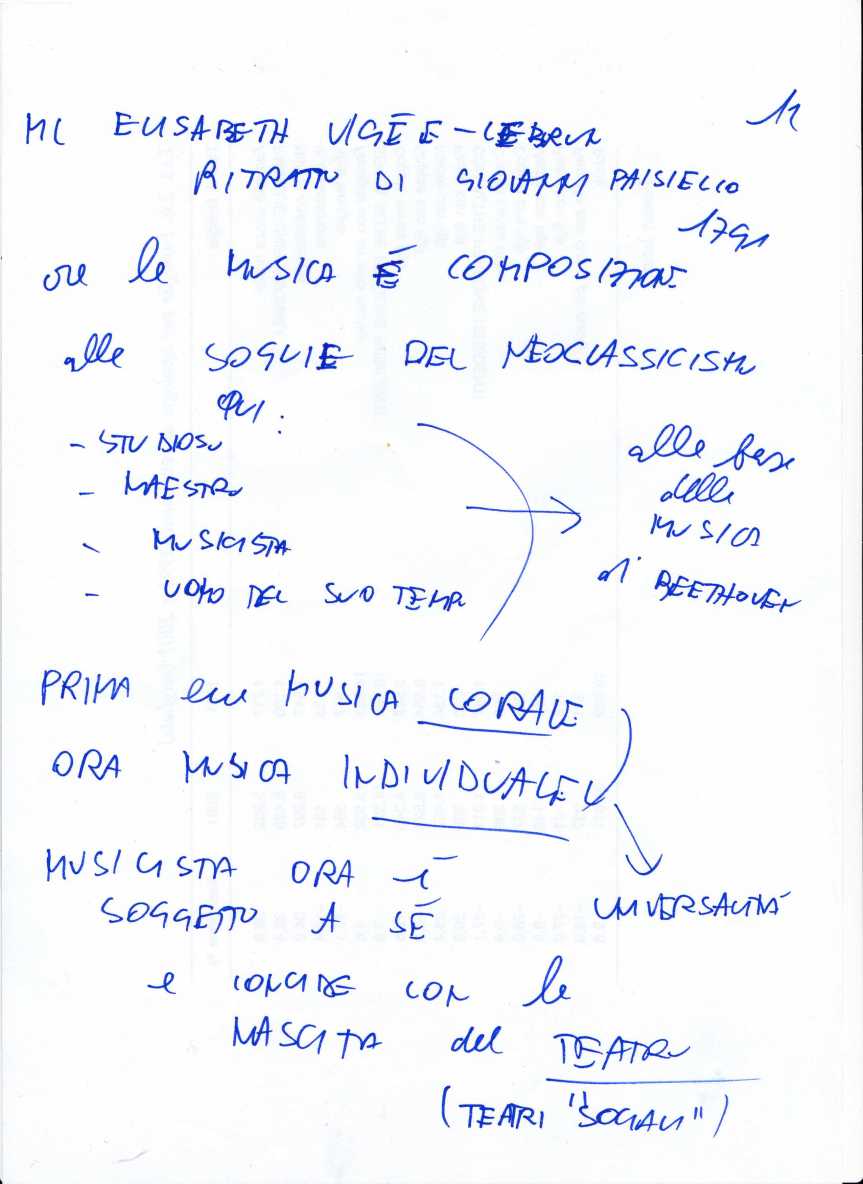 11
ML ELISABETH VIGÉE-LEBRUN
RITRATTO DI GIOVANNI PAISIELLO
1791
ora la MUSICA È COMPOSIZIONE
alle SOGLIE DEL NEOCLASSICISMO
QUI:
- STUDIOSO
- MAESTRO
- MUSICISTA
- UOMO DEL SUO TEMPO
alla base
della
MUSICA
di BEETHOVEN
PRIMA era MUSICA CORALE
ORA MUSICA INDIVIDUALE
UNIVERSALITÀ
MUSICISTA ORA è
SOGGETTO A SÉ
e COINCIDE CON la
NASCITA del TEATRO
(TEATRI "SOCIALI")